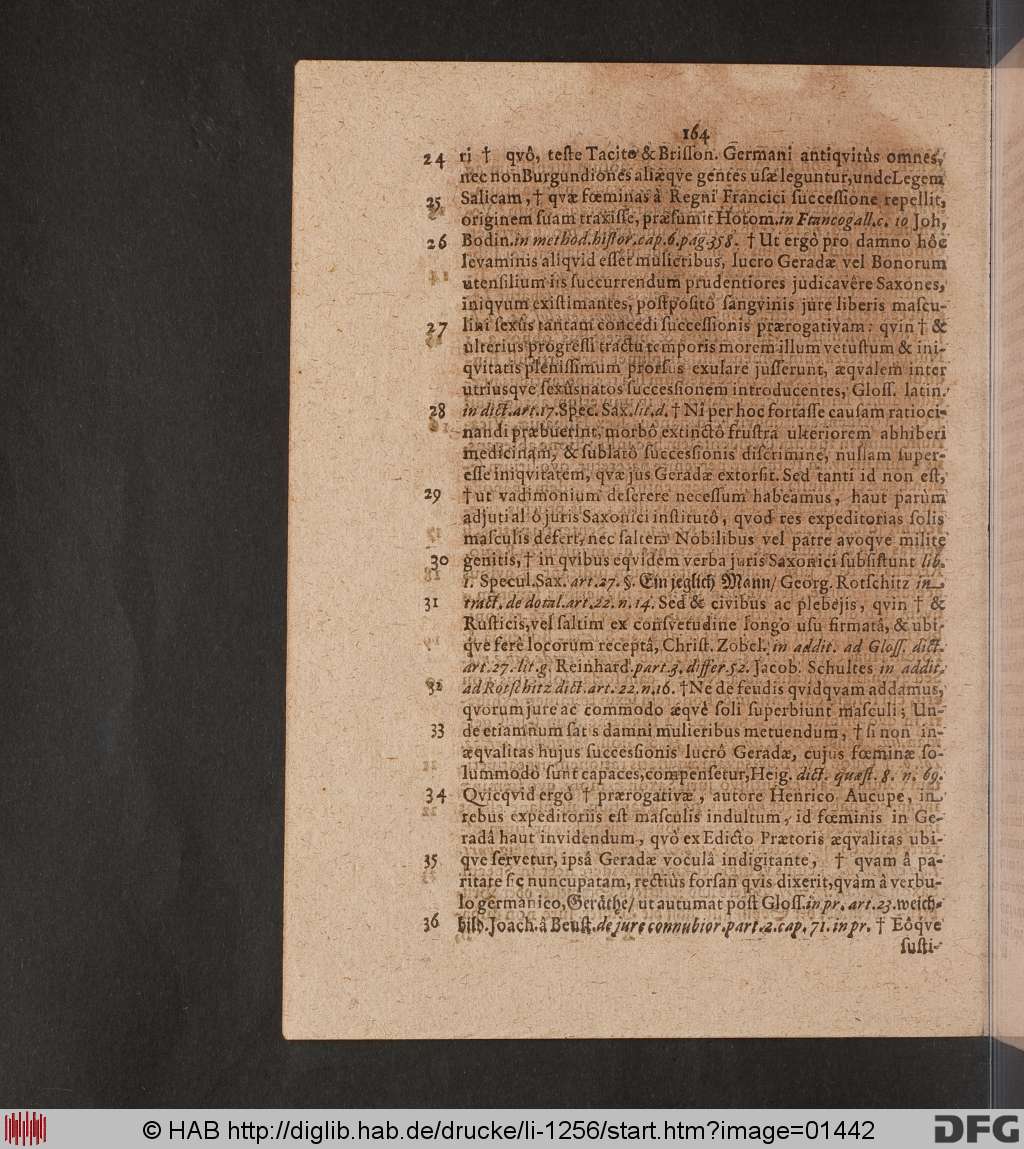 164
24 ri † qvô, teste Tacito & Brisson. Germani antiqvitùs omnes,
nec non Burgundiones aliæqve gentes usæ leguntur, unde Legem
25 Salicam, † qvæ fœminas à Regni Francici successione repellit,
originem suam traxisse, præsumit Hotom. in Ftancogall. c. 10 Joh,
26 Bodin. in method. histor. cap. 6. pag. 358. † Ut ergò pro damno hôc
levaminis aliqvid esset mulieribus, lucro Geradæ vel Bonorum
utensilium iis succurrendum prudentiores judicavêre Saxones,
iniqvum existimantes, postpositô sangvinis jure liberis mascu-
27 lini sexûs tantam concedi successionis prærogativam: qvin † &
ulterius progressi tractu temporis morem illum vetustum & ini-
qvitatis plenissimum prorsus exulare jusserunt, æqvalem inter
utriusqve sexûs natos successionem introducentes, Gloss. latin.
28 in dict. art. 17. Spec. Sax. lit. d. † Ni per hoc fortasse causam ratioci-
nandi præbuerint, morbô extinctô frustrà ulteriorem abhiberi
medicinam, & sublatô successionis discrimine, nullam super-
esse iniqvitatem, qvæ jus Geradæ extorsit. Sed tanti id non est,
29 † ut vadimonium deserere necessum habeamus, haut parùm
adjuti al ô juris Saxonici institutô, qvod res expeditorias solis
masculis defert, nec saltem Nobilibus vel patre avoqve milite
30 genitis, † in qvibus eqvidem verba juris Saxonici subsistunt lib.
1. Specul. Sax. art. 27. §. Ein jeglich Mann/ Georg. Rotschitz in
31 tract. de dotal. art. 22. n. 14. Sed & civibus ac plebejis, qvin † &
Rusticis, vel saltim ex consvetudine longo usu firmatâ, & ubi-
qve ferè locorum receptâ, Christ. Zobel. in addit. ad Gloss. dict.
art. 27. lit. g. Reinhard. part. 3. differ. 52. Jacob. Schultes in addit.
32 ad Rotschitz dict. art. 22. n. 16. † Ne de feudis qvidqvam addamus,
qvorum jure ac commodo æqvè soli superbiunt masculi; Un-
33 de etiamnum sat s damni mulieribus metuendum, † si non in-
æqvalitas hujus successionis lucrô Geradæ, cujus fœminæ so-
lummodò sunt capaces, compensetur, Heig. dict. quæst. 8. n. 69.
34 Qvicqvid ergò † prærogativæ, autore Henrico Aucupe, in
rebus expeditoriis est masculis indultum, id fœminis in Ge-
radâ haut invidendum, qvò ex Edicto Prætoris æqvalitas ubi-
35 qve servetur, ipsâ Geradæ voculâ indigitante, † qvam â pa-
ritate sic nuncupatam, rectiùs forsan qvis dixerit, qvàm â verbu-
lo germanico, Geräthe/ ut autumat post Gloss. in pr. art. 23. weich-
36 bild. Joach. â Beust. de jure connubior. part. 2. cap. 71. in pr. † Eôqve
susti-
© HAB http://diglib.hab.de/drucke/li-1256/start.htm?image=01442
DFG